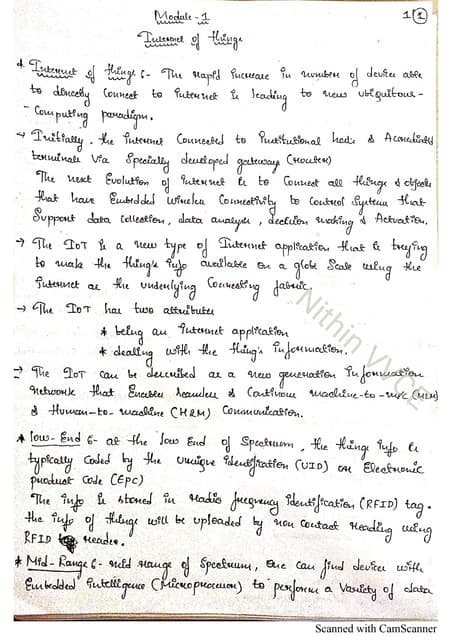 Module-1
1 1
Internet of things
* Internet of things :- The rapid increase in number of device able
to directly connect to internet is leading to new ubiquitous-
-computing paradigm.
→ Initially, the internet connected to institutional hosts & Accredited
terminals via specially developed gateways (router)
The next Evolution of internet is to connect all things & objects
that have Embedded wireless connectivity to control system that
Support data collection, data analysis, decision making & Actuation.
→ The IoT is a new type of Internet application that is trying
to make the thing's info available on a globe scale using the
internet as the underlying connecting fabric.
→ The IoT has two attributes
* being an internet application
* dealing with the thing's information.
→ The IoT can be described as a new generation information
network that Enables seamless & continous machine-to-m/c (M2M)
& Human-to-machine (H2M) communication.
* low-End :- at the low End of spectrum, the things info is
typically coded by the unique identification (UID) or Electronic
product code (EPC)
The info is stored in radio frequency identification (RFID) tag.
the info of things will be uploaded by non contact reading using
RFID reader.
* Mid-Range :- mid range of spectrum, one can find device with
Embedded intelligence (Microprocessor) to perform a variety of data
Nithin VVCE
Scanned with CamScanner